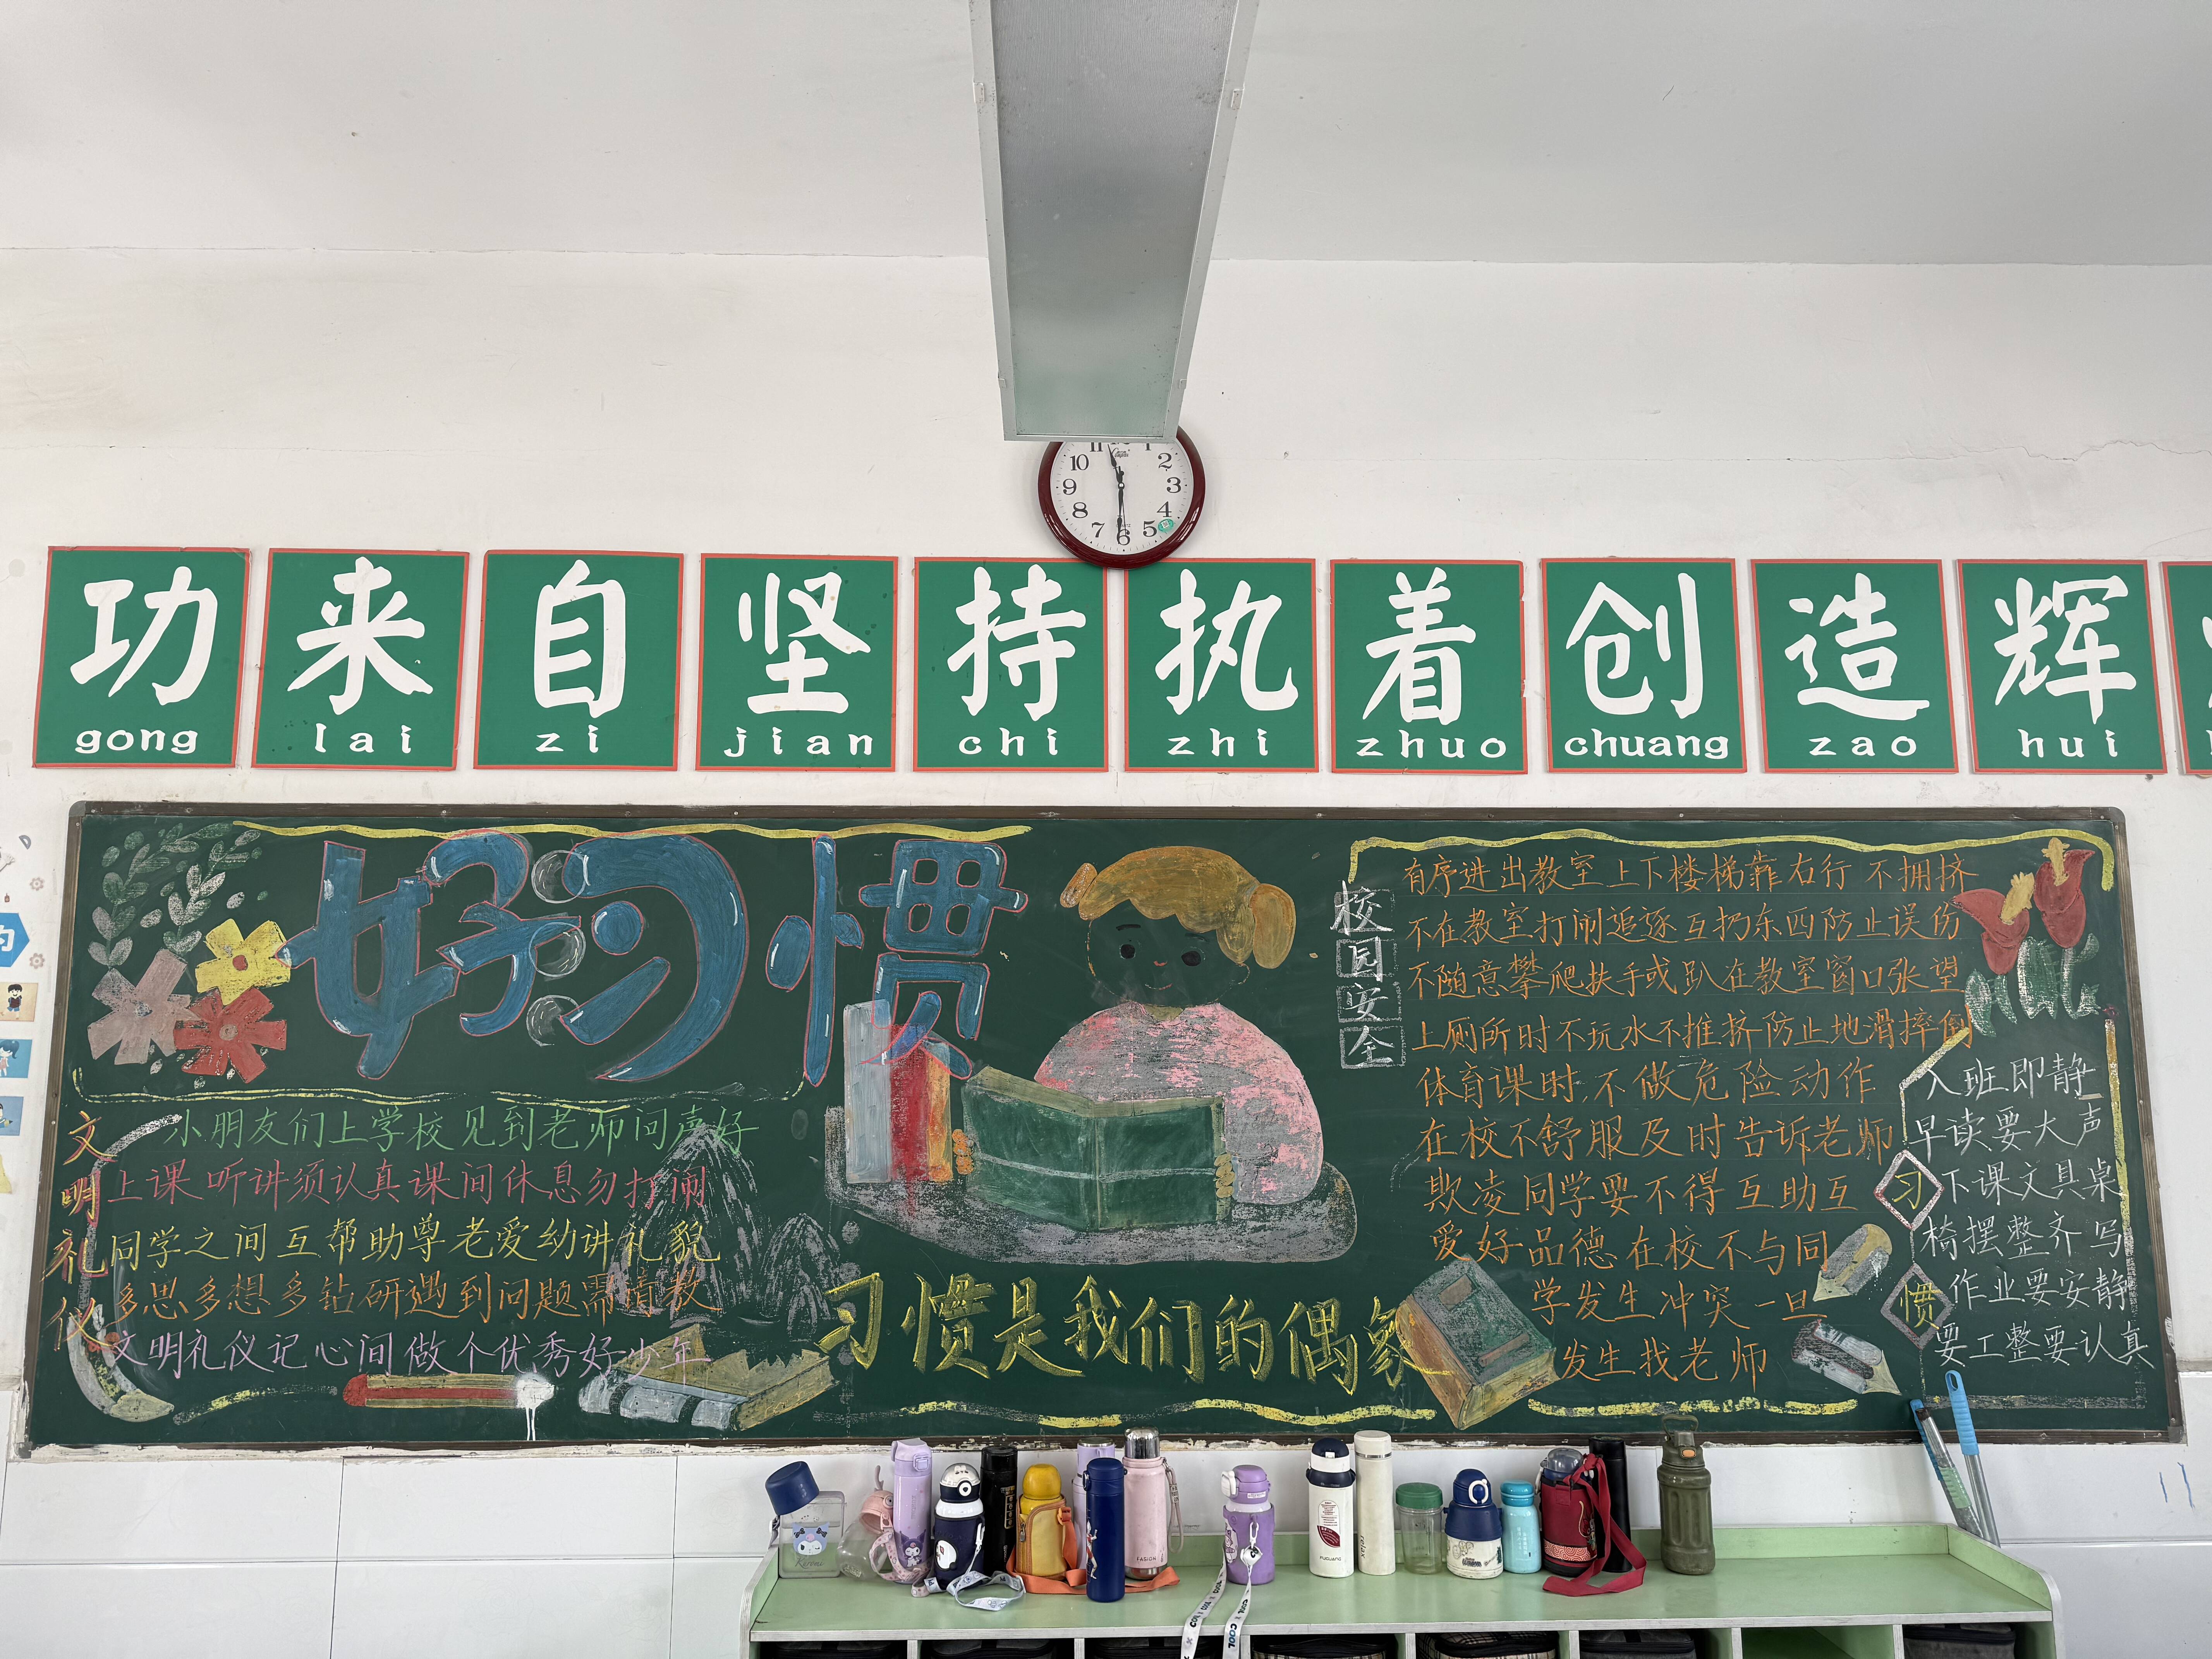 11 1
10 2
9 3
8 4
7 6 5
功 来 自 坚 持 执 着 创 造 辉
gong lai zi jian chi zhi zhuo chuang zao hui
好习惯
文明礼仪
小朋友们上学校见到老师问声好
上课听讲须认真课间休息勿打闹
同学之间互帮助尊老爱幼讲礼貌
多思多想多钻研遇到问题需请教
文明礼仪记心间做个优秀好少年
习惯是我们的偶象
校园安全
有序进出教室上下楼梯靠右行 不拥挤
不在教室打闹追逐互扔东西防止误伤
不随意攀爬扶手或趴在教室窗口张望
上厕所时不玩水不推挤防止地滑摔倒
体育课时,不做危险动作
在校不舒服及时告诉老师
欺凌同学要不得互助互
爱好品德在校不与同
学发生冲突一旦
发生找老师
习惯
入班即静
早读要大声
下课文具桌
椅摆整齐写
作业要安静
要工整要认真
Kuromi
FASION
COOL
COOL
FUGUANG
relax